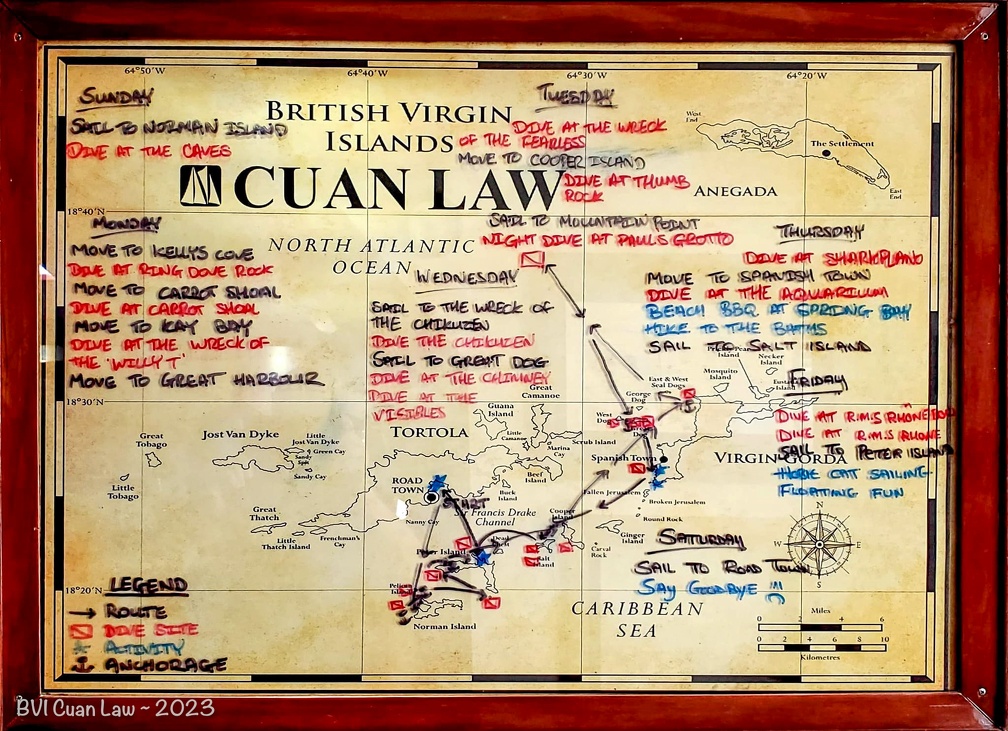 64°50'W
64°40'W
64°30'W
64°20'W
SUNDAY
SAIL TO NORMAN ISLAND
DIVE AT THE CAVES
BRITISH VIRGIN
ISLANDS
CUAN LAW
TUESDAY
DIVE AT THE WRECK
OF THE FEARLESS
MOVE TO COOPER ISLAND
DIVE AT THUMB
ROCK
SAIL TO MOUNTAIN POINT
NIGHT DIVE AT PAUL'S GROTTO
West
End
The Settlement
East
End
ANEGADA
18°40'N
MONDAY
MOVE TO KELLYS COVE
DIVE AT RING DOVE ROCK
MOVE TO CARROT SHOAL
DIVE AT CARROT SHOAL
MOVE TO KAY BAY
DIVE AT THE WRECK OF
THE "WILLY T"
MOVE TO GREAT HARBOUR
NORTH ATLANTIC
OCEAN
WEDNESDAY
SAIL TO THE WRECK OF
THE CHIKUZEN
DIVE THE CHIKUZEN
SAIL TO GREAT DOG
DIVE AT THE CHIMNEY
DIVE AT THE
VISIBLES
THURSDAY
DIVE AT SHARKPLANO
MOVE TO SPANISH TOWN
DIVE AT THE AQUARIUM
BEACH BBQ AT SPRING BAY
HIKE TO THE BATHS
SAIL TO SALT ISLAND
Island
Necker
Island
Mosquito
Island
East & West
Seal Dogs
George
Dog
West
Dog
FRIDAY
DIVE AT R.M.S RHONE BOW
DIVE AT R.M.S RHONE
SAIL TO PETER ISLAND
HOBIE CAT SAILING
FLOATING FUN
18°30'N
Great
Camanoe
Guana
Island
Little
Camanoe
Marina
Cay
Scrub Island
TORTOLA
Great
Tobago
Jost Van Dyke
Little
Jost Van Dyke
Green Cay
Sandy
Spit
Sandy Cay
Little
Tobago
Great
Thatch
Little
Thatch Island
Frenchman's
Cay
ROAD
TOWN
START
Nanny Cay
Beef
Island
Buck
Island
Sir Francis Drake
Channel
Spanish Town
VIRGIN GORDA
Fallen Jerusalem
Broken Jerusalem
Round Rock
Ginger
Island
Cooper
Island
Carval
Rock
Salt
Island
Dead
Chest
Peter Island
Norman Island
SATURDAY
SAIL TO ROAD TOWN
SAY GOODBYE !!!
N
E
S
W
18°20'N
LEGEND
ROUTE
DIVE SITE
ACTIVITY
ANCHORAGE
CARIBBEAN
SEA
Miles
0 2 4 6
0 2 4 6 8
Kilometres
BVI Cuan Law ~ 2023